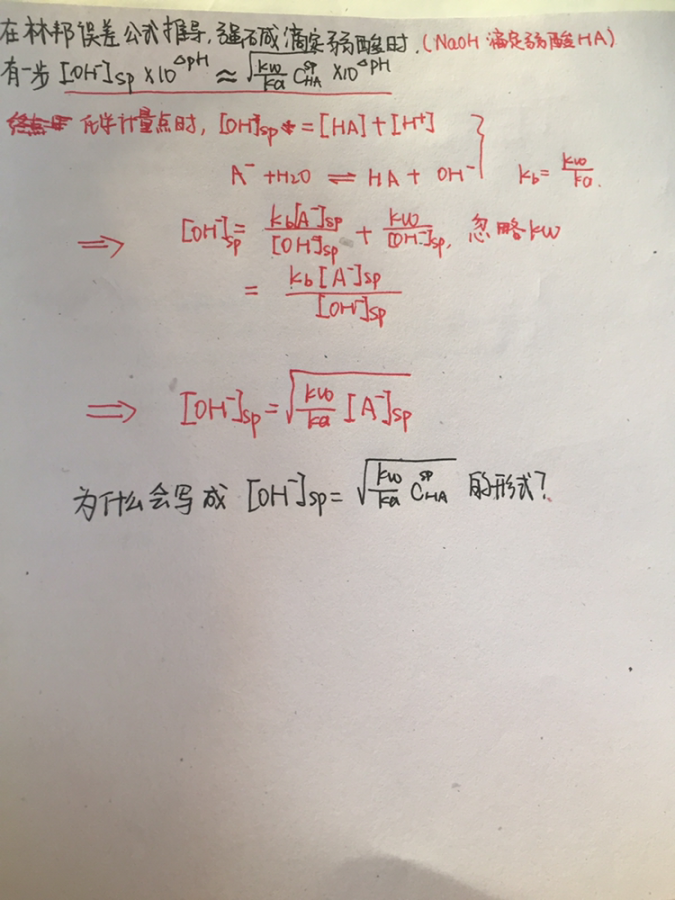 在林邦误差公式推导,强碱滴定弱酸时.(NaOH 滴定弱酸HA)
有一步 [OH⁻]sp ×10^ΔpH ≈ √(kw/ka C_HA^sp) ×10^ΔpH
化学计量点时, [OH⁻]sp = [HA] + [H⁺]
A⁻ + H2O ⇌ HA + OH⁻ kb = kw/ka.
⇒ [OH⁻]sp = kb[A⁻]sp/[OH⁻]sp + kw/[OH⁻]sp, 忽略kw
= kb[A⁻]sp/[OH⁻]sp
⇒ [OH⁻]sp = √(kw/ka [A⁻]sp)
为什么会写成 [OH⁻]sp = √(kw/ka C_HA^sp) 的形式?